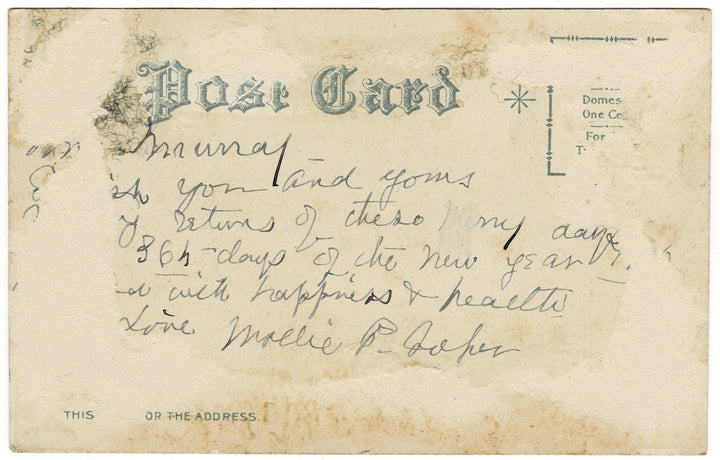 Post Card
Domes
One Ce
For
T
Murray
ish you and yours
y returns of these Merry days
365 days of the new year
with happiness & health
Love Mollie P.
THIS OR THE ADDRESS.